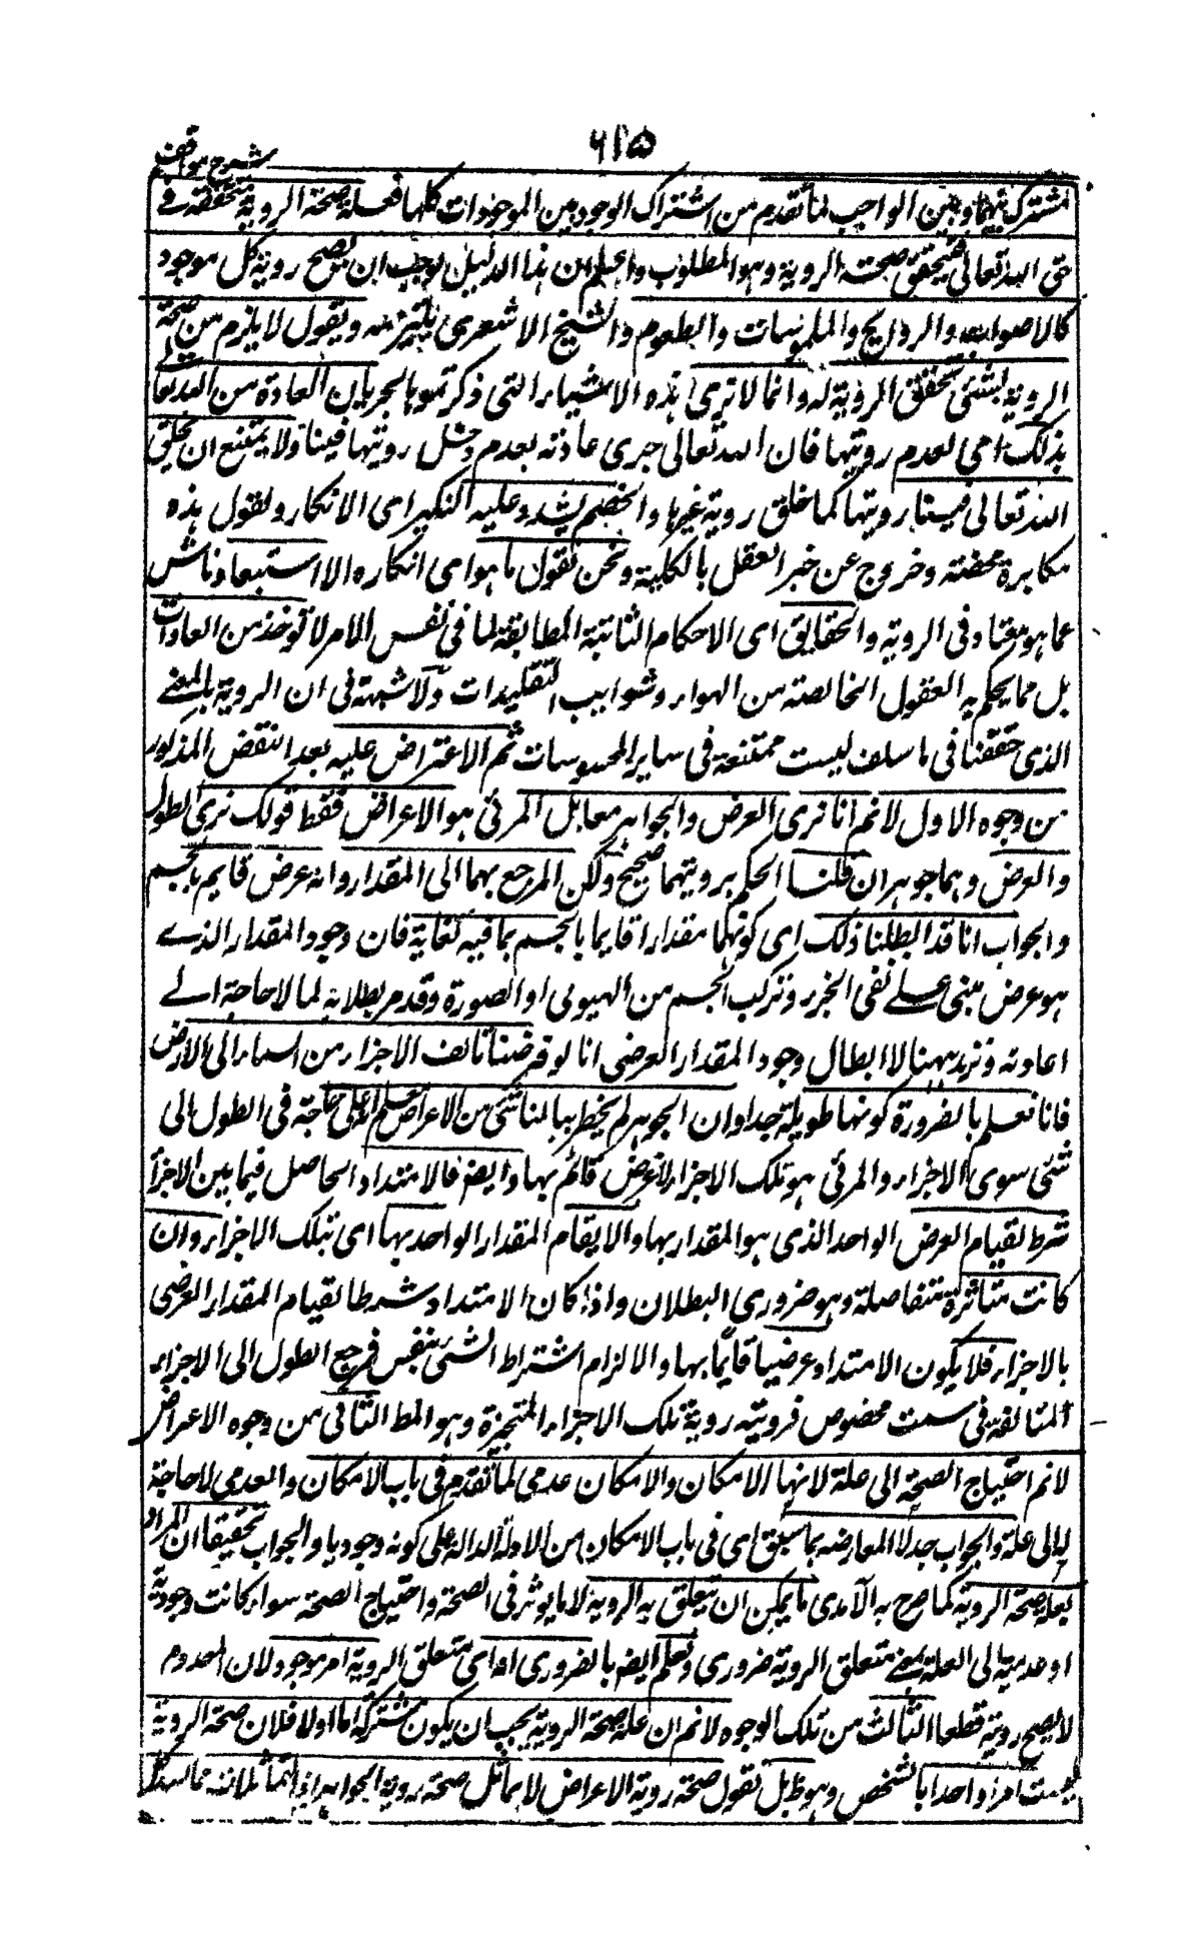 ٦١٥
شرح مواقف
مشترك بينهما وبين الواجب لما تقدم من اشتراك الوجود بين الموجودات كلها فعلة صحة الروية متحققة في
حق الله تعالى فيتحقق صحة الروية وهو المطلوب واعلم ان هذا الدليل يوجب ان يصح روية كل موجود
كالاصوات والروايح والملموسات والطعوم والشيخ الاشعرى يلتزمه ويقول لا يلزم من صحة
الروية لشئى تحقق الروية له وانما لا نرى هذه الاشياء التى ذكرتموها لجريان العادة من الله تعالى
بذلك اى بعدم رويتها فان الله تعالى جرى عادته بعدم خلق رويتها فينا ولا يمتنع ان يخلق
الله تعالى فينا رويتها كما خلق روية غيرها والخصم يشدد عليه النكير اى الانكار ويقول هذه
مكابرة محضة وخروج عن حيز العقل بالكلية ونحن نقول ما هو اى انكاره الا استبعاد ناش
عما هو معتاد فى الروية والحقايق اى الاحكام الثابتة المطابقة لما فى نفس الامر لا توخذ من العادات
بل مما يحكم به العقول الخالصة من الهواء وشوايب التقليدات ولا شبهة فى ان الروية بالمعنے
الذى حققنا فى ما سلف ليست ممتنعة فى ساير المحسوسات ثم الاعتراض عليه بعد النقض المذكور
من وجوه الاول لانم انا نرى العرض والجواهر معا بل المرئى هو الاعراض فقط قولك نرى الطول
والعرض وهما جوهران قلنا الحكم برويتهما صحيح ولكن المرجع بهما الى المقدار وانه عرض قايم بالجسم
والجواب انا قد ابطلنا ذلك اى كونهما مقدارا قايما بالجسم بما فيه كفاية فان وجود المقدار الذے
هو عرض مبنى علے نفى الجزء وتركب الجسم من الهيولى او الصورة وقد مر بطلانه لما لا حاجة الے
اعادته ونزيد ههنا لابطال وجود المقدار العرضى انا لو فرضنا تالف الاجزاء من السماء الى الارض
فانا نعلم بالضرورة كونها طويلة جدا وان الجوهر لم يخطر ببالنا شئى من الاعراض فعلم انه لا حاجة فى الطول الى
شئى سوى الاجزاء والمرئى هو تلك الاجزاء لا عرض قائم بها وايضا فالامتداد الحاصل فيما بين الاجزأ
شرط لقيام العرض الواحد الذى هو المقدار بها والا لقام المقدار الواحد بها اى بتلك الاجزاء وان
كانت متناثرة متفاصلة وهو ضرورى البطلان واذا كان الامتداد شرطا لقيام المقدار العرضى
بالاجزاء فلا يكون الامتداد عرضيا قايما بها والا لزم اشتراط الشئى بنفسه فمرجع الطول الى الاجزاء
المتالفة فى سمت مخصوص فرويته روية تلك الاجزاء المتحيزة وهو المط الثانى من وجوه الاعتراض
لانم احتياج الصحة الى علة لانها الامكان والامكان عدمى لما تقدم فى باب الامكان والعدمى لا حاجة
له الى علة والجواب جدلا المعارضه بما سبق اى فى باب الامكان من الادلة الدالة على كونه وجوديا والجواب تحقيقا ان المراد
بعلة صحة الروية كما صرح به الآمدى ما يمكن ان يتعلق به الروية لا ما يوثر فى الصحة واحتياج الصحة سواء كانت وجودية
او عدمية الى العلة بمعنے متعلق الروية ضرورى ونعلم ايضا بالضرورى انه اى متعلق الروية امر موجود لان المعدوم
لا يصح رويته قطعا الثالث من تلك الوجوه لانم ان علة صحة الروية يجب ان يكون مشتركة اما اولا فلان صحة الروية
ليست امرا واحدا بالشخص وهو ظ بل نقول صحة روية الاعراض لا يماثل صحة روية الجواهر اذ المتماثلان